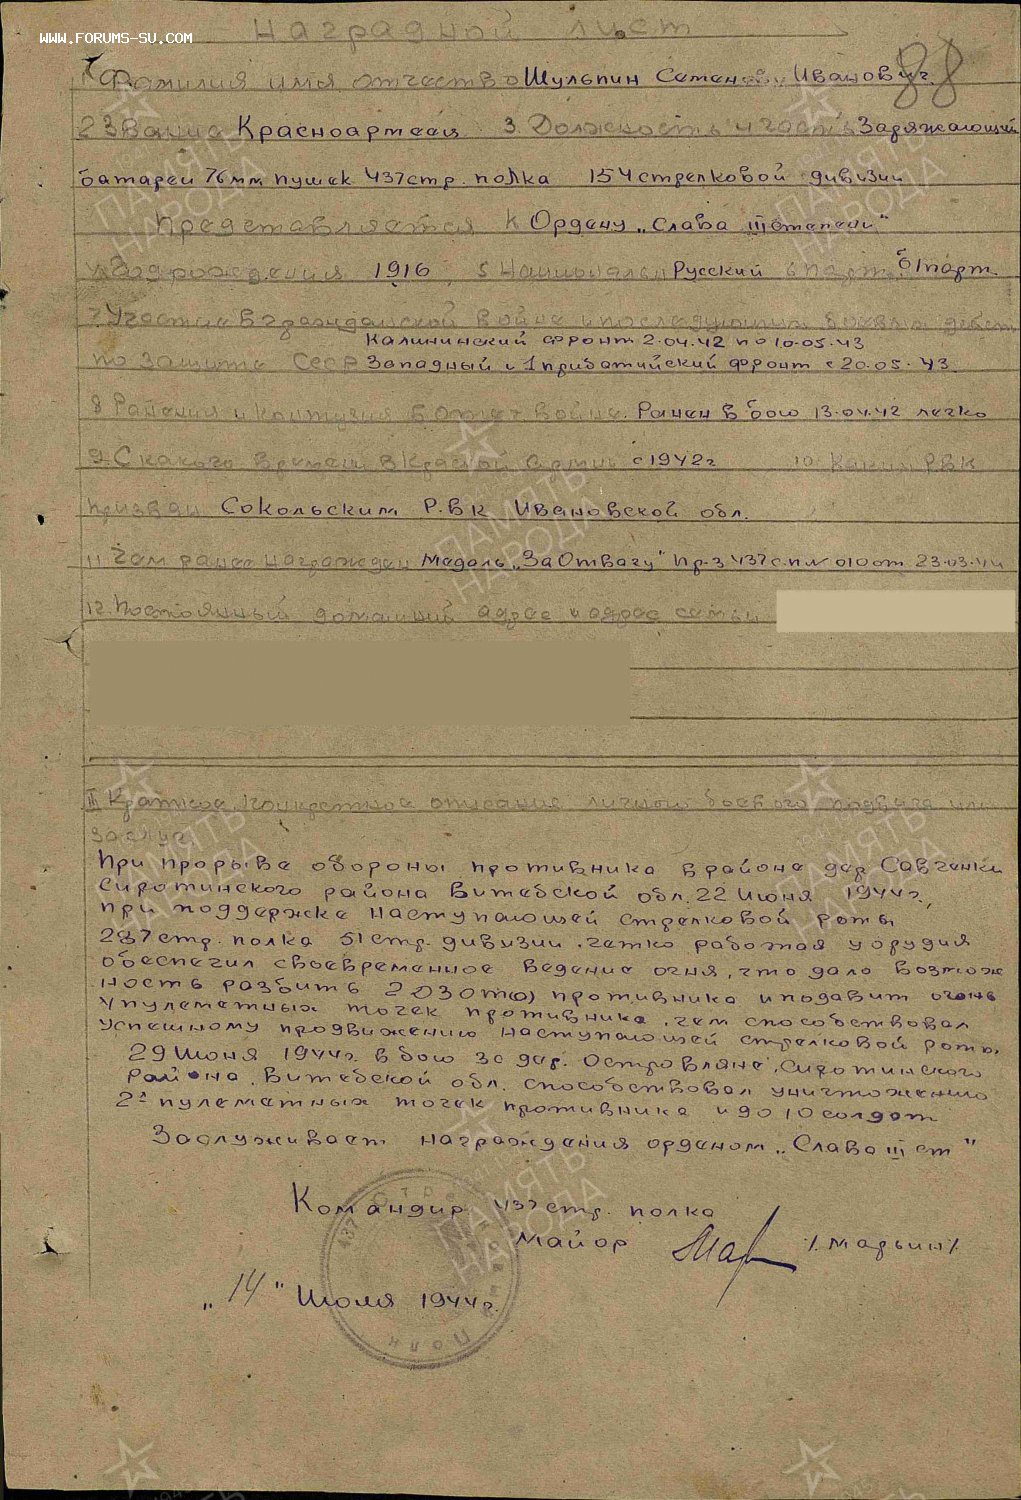 WWW.FORUMS-SU.COM
Наградной лист
88
1 Фамилия имя отчество Шульпин Семен Иванович
2 Звание Красноармеец 3. Должность и часть Заряжающий
батареи 76мм пушек 437 стр. полка 154 стрелковой дивизии
Представляется к Ордену „Слава III степени"
Год рождения 1916 5 Национальн Русский 6 Парт б/парт.
7 Участие в гражданской войне и последующих боевых действ
Калининский фронт 2.04.42 по 10.05.43
по защите СССР Западный и 1 прибатийский фронт с 20.05.43.
8 Ранения и контузия в отечест войне. Ранен в бою 13.04.42 легко
9. С какого времени в Красной Армии с 1942 г 10 Каким РВК
призван Сокольским Р.В.К Ивановской обл.
11. Чем ранее награжден Медаль „За Отвагу" Пр-з 437 с.п № 010 от 23.03.44
12. Постоянный домашний адрес и адрес семьи
III Краткое, конкретное описание личного боевого подвига или
заслуг
При прорыве обороны противника в районе дер Савченки
Сиротинского района Витебской обл. 22 Июня 1944 г.,
при поддержке наступающей стрелковой роты
287 стр. полка 51 стр. дивизии, четко работая у орудия
обеспечил своевременное ведение огня, что дало возмож
ность разбить 2 ДЗОТ(а) противника и подавит огонь
4 пулеметных точек противника, чем способствовал
успешному продвижению наступающей стрелковой роты.
29 Июня 1944 г. в бою за дер. Островляне, Сиротинского
района, Витебской обл. способствовал уничтожению
2х пулеметных точек противника и до 10 солдат
Заслуживает награждения орденом „Слава III ст"
Командир 437 стр. полка
Майор /Марьин/
„14" Июля 1944 г.
437 Стрелковый Полк
ПАМЯТЬ НАРОДА